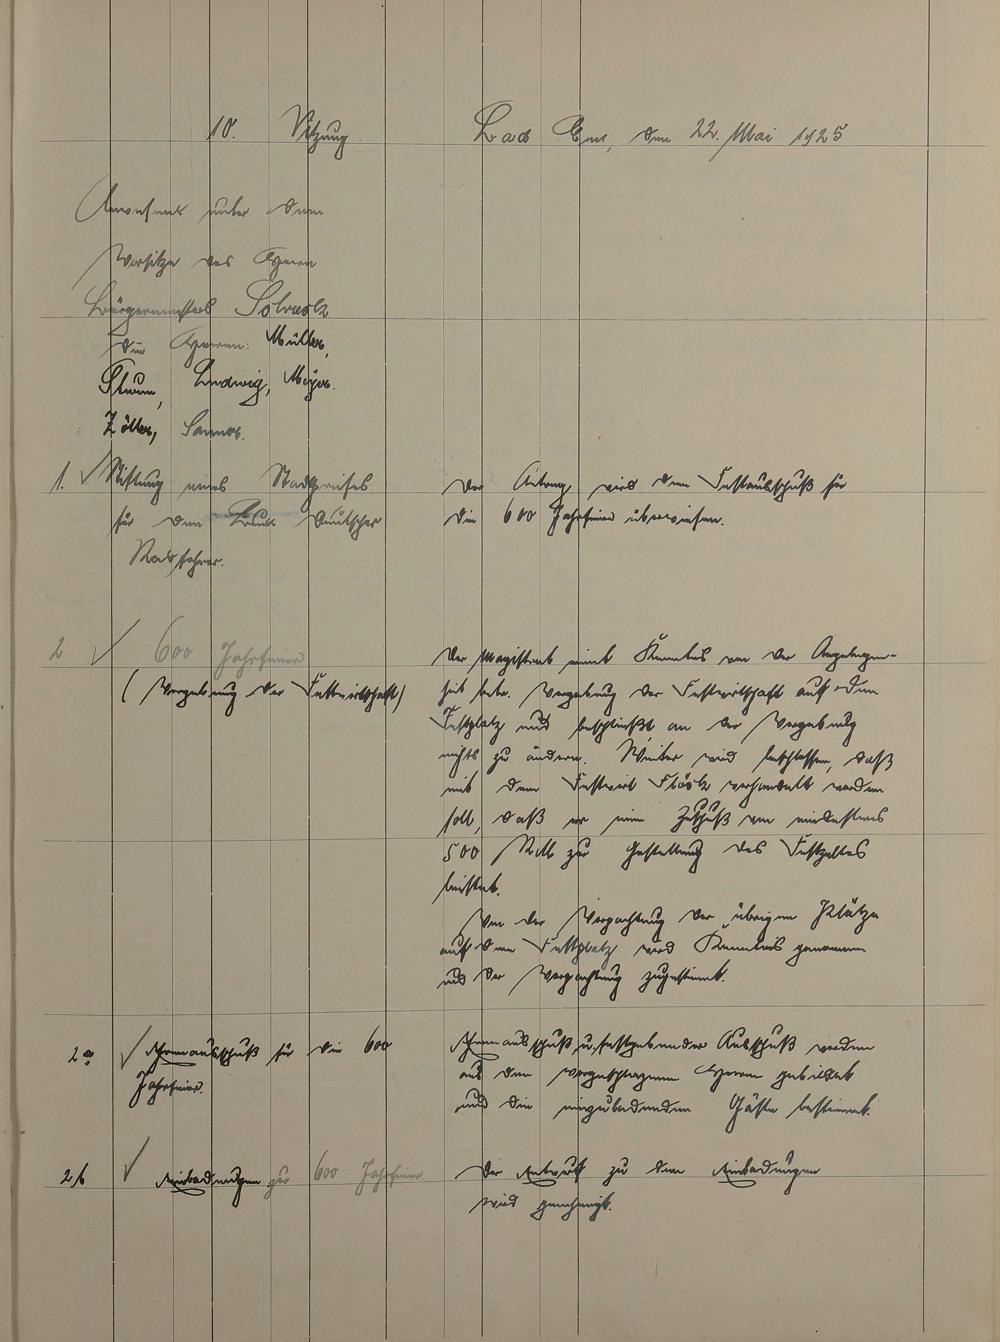 10. Sitzung.
Bad Ems, den 22. Mai 1925
Anwesend unter dem
Vorsitze des Herrn
Bürgermeisters
die Herren: Müller,
Thum, Ludwig, Meyer.
Zöller,
1. Stiftung eines Stadtpreises
für den Bund Deutscher
Radfahrer.
Der Antrag wird dem Festausschuß für
die 600 Jahrfeier überwiesen.
2 600 Jahrfeier
(Vergebung der Festwirtschaft)
Der Magistrat nimt Kenntnis von der Angelegen-
heit betr. Vergebung der Festwirtschaft auf dem
Festplatz und beschließt an der Vergebung
nichts zu ändern. Weiter wird beschlossen, daß
mit dem Festwirt verhandelt werden
soll, daß er einen Zuschuß von mindestens
500 Mk zur Gestellung des Festzeltes
leistet.
Von der Verpachtung der übrigen Plätze
auf dem Festplatz wird Kenntnis genommen
und der Verpachtung zugestimt.
2a Ehrenausschuß für die 600
Jahrfeier.
Ehrenausschuß u. festgebender Ausschuß werden
aus den vorgeschlagenen Herren gebildet
und die einzuladenden Gäste bestimt.
2b Einladungen zur 600 Jahrfeier
Der Entwurf zu den Einladungen
wird genehmigt.